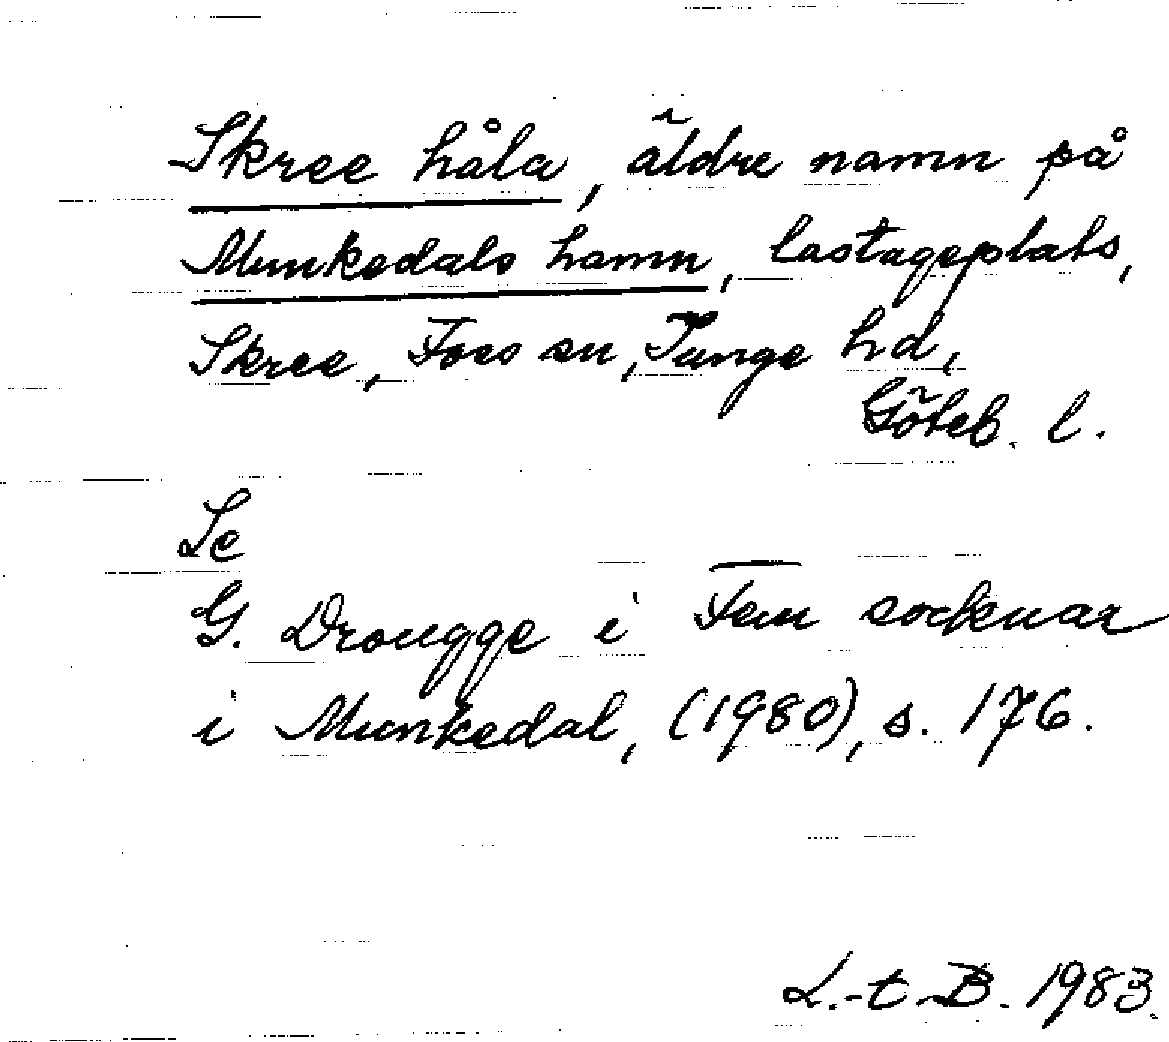 Skree håla, äldre namn på
Munkedals hamn, lastageplats,
Skree, Foss sn, Tunge hd,
Göteb. l.
Se
G. Drougge i Fem socknar
i Munkedal, (1980), s. 176.
L.-t B. 1983.